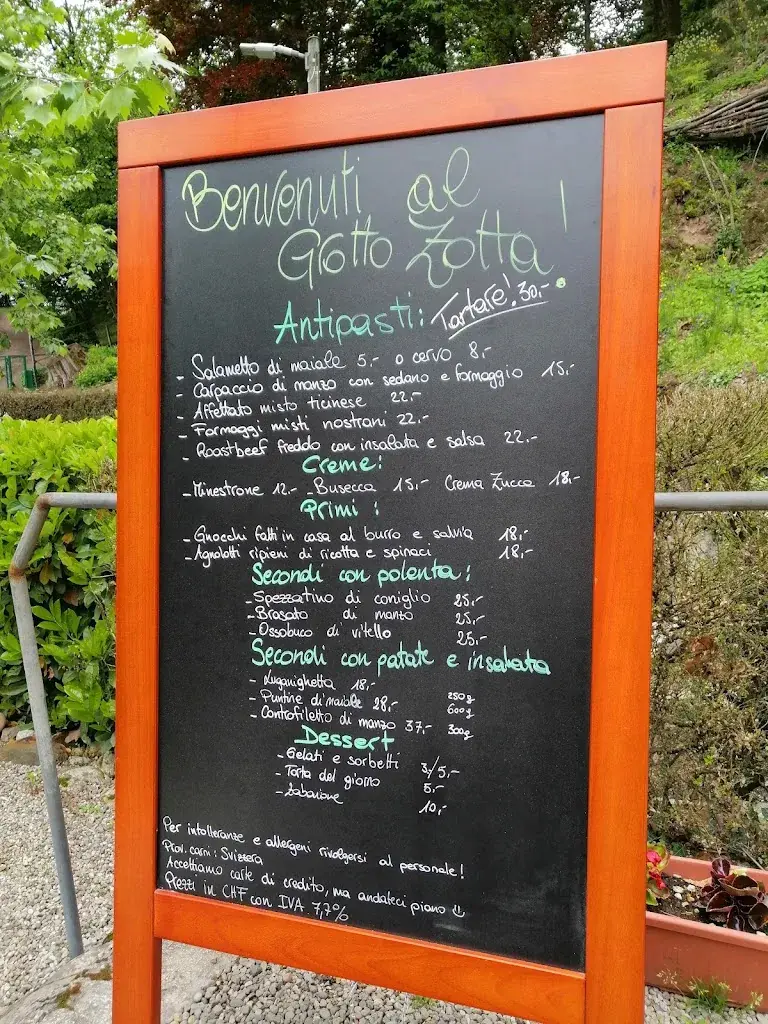 Benvenuti al
Grotto Zotta!
Antipasti: Tartare! 30,-
- Salametto di maiale 5,- o cervo 8,-
- Carpaccio di manzo con sedano e formaggio 15,-
- Affettato misto ticinese 22,-
- Formaggi misti nostrani 22,-
- Roastbeef freddo con insalata e salsa 22,-
Creme:
- Minestrone 12,- - Busecca 15,- Crema Zucca 18,-
Primi:
- Gnocchi fatti in casa al burro e salvia 18,-
- Agnolotti ripieni di ricotta e spinaci 18,-
Secondi con polenta:
- Spezzatino di coniglio 25,-
- Brasato di manzo 25,-
- Ossobuco di vitello 25,-
Secondi con patate e insalata
- Luganighetta 18,- 250g
- Puntine di maiale 28,- 600g
- Controfiletto di manzo 37,- 300g
Dessert
- Gelati e sorbetti 3/5,-
- Torta del giorno 5,-
- Zabaione 10,-
Per intolleranze e allergeni rivolgersi al personale!
Prov. carni: Svizzera
Accettiamo carte di credito, ma andateci piano ☺
Prezzi in CHF con IVA 7,7%